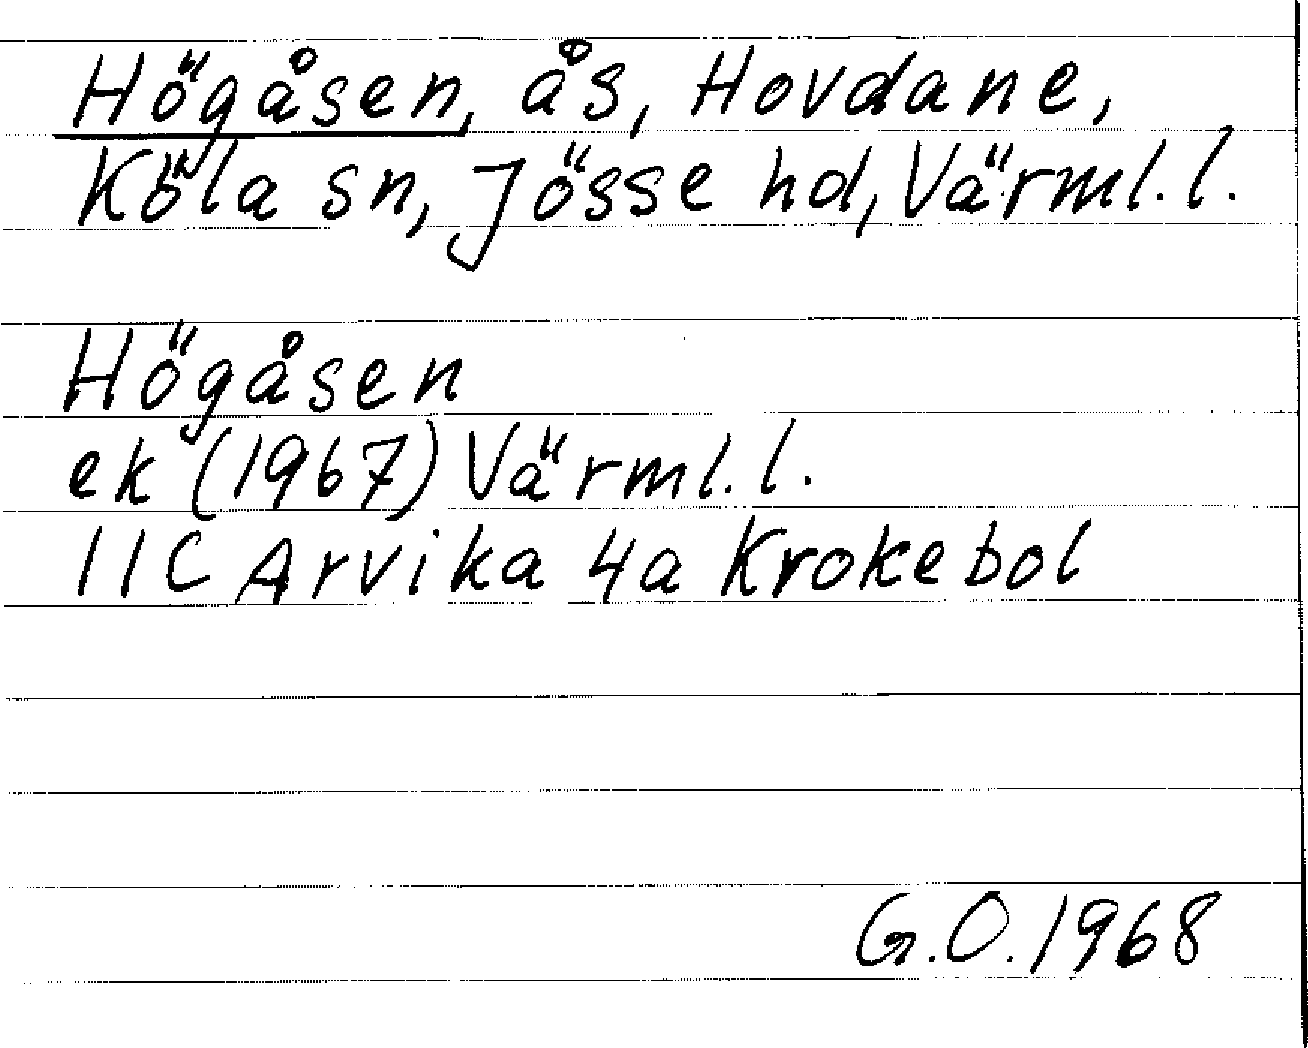 Högåsen, ås, Hovdane,
Köla sn, Jösse hd, Värml. l.
Högåsen
ek (1967) Värml. l.
11C Arvika 4a Krokebol
G.O. 1968